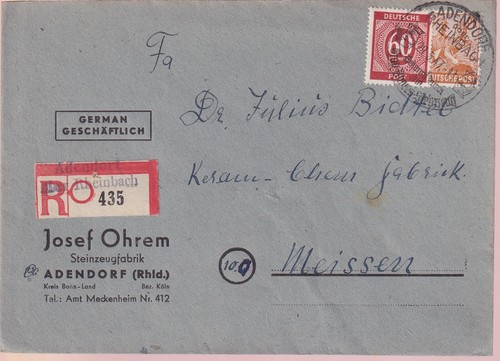 Fa
DEUTSCHE
60
POST
DEUTSCHE POST
ADENDORF
RHEINBACH
GERMAN
GESCHÄFTLICH
Dr. Julius Bidtel
Keram.-Chem Fabrick.
Adendorf
über Rheinbach
R
435
Josef Ohrem
Steinzeugfabrik
ADENDORF (Rhld.)
Kreis Bonn-Land Bez. Köln
Tel.: Amt Meckenheim Nr. 412
10a
Meissen